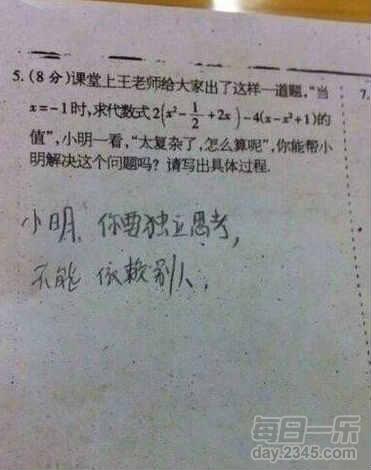 5.(8分)课堂上王老师给大家出了这样一道题,“当
x=-1时,求代数式2(x²-1/2+2x)-4(x-x²+1)的
值”,小明一看,“太复杂了,怎么算呢”,你能帮小
明解决这个问题吗?请写出具体过程.
7.
小明、你要独立思考,
不能依赖别人.
每日一乐
day.2345.com